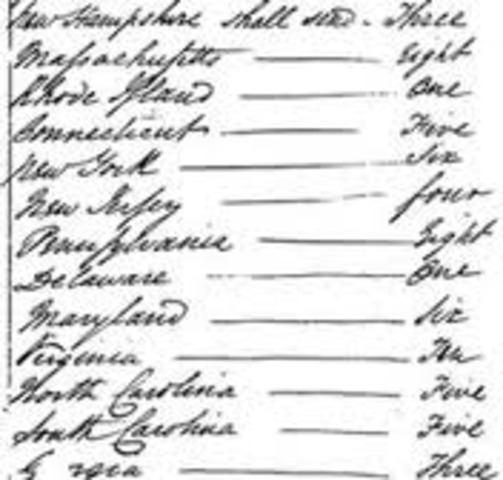 New Hampshire shall send - Three
Massachusetts — Eight
Rhode Island — One
Connecticut — Five
New York — Six
New Jersey — four
Pennsylvania — Eight
Delaware — One
Maryland — Six
Virginia — Ten
North Carolina — Five
South Carolina — Five
G rgia — Three